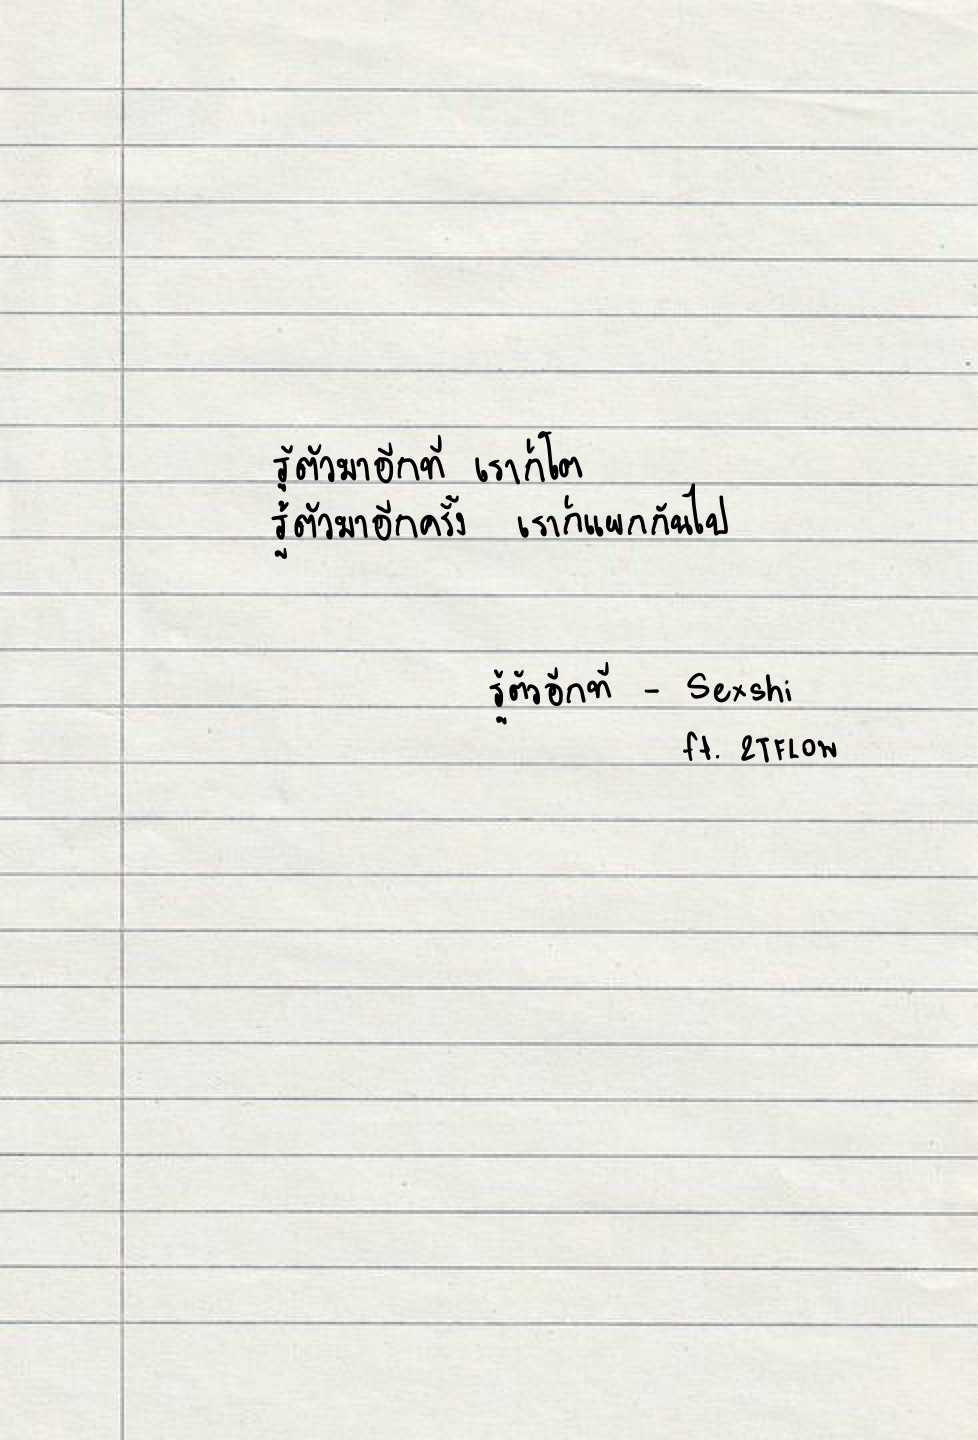 รู้ตัวมาอีกที เราก็โต
รู้ตัวมาอีกครั้ง เราก็แยกกันไป
รู้ตัวอีกที - Sexshi
ft. 2TFLOW